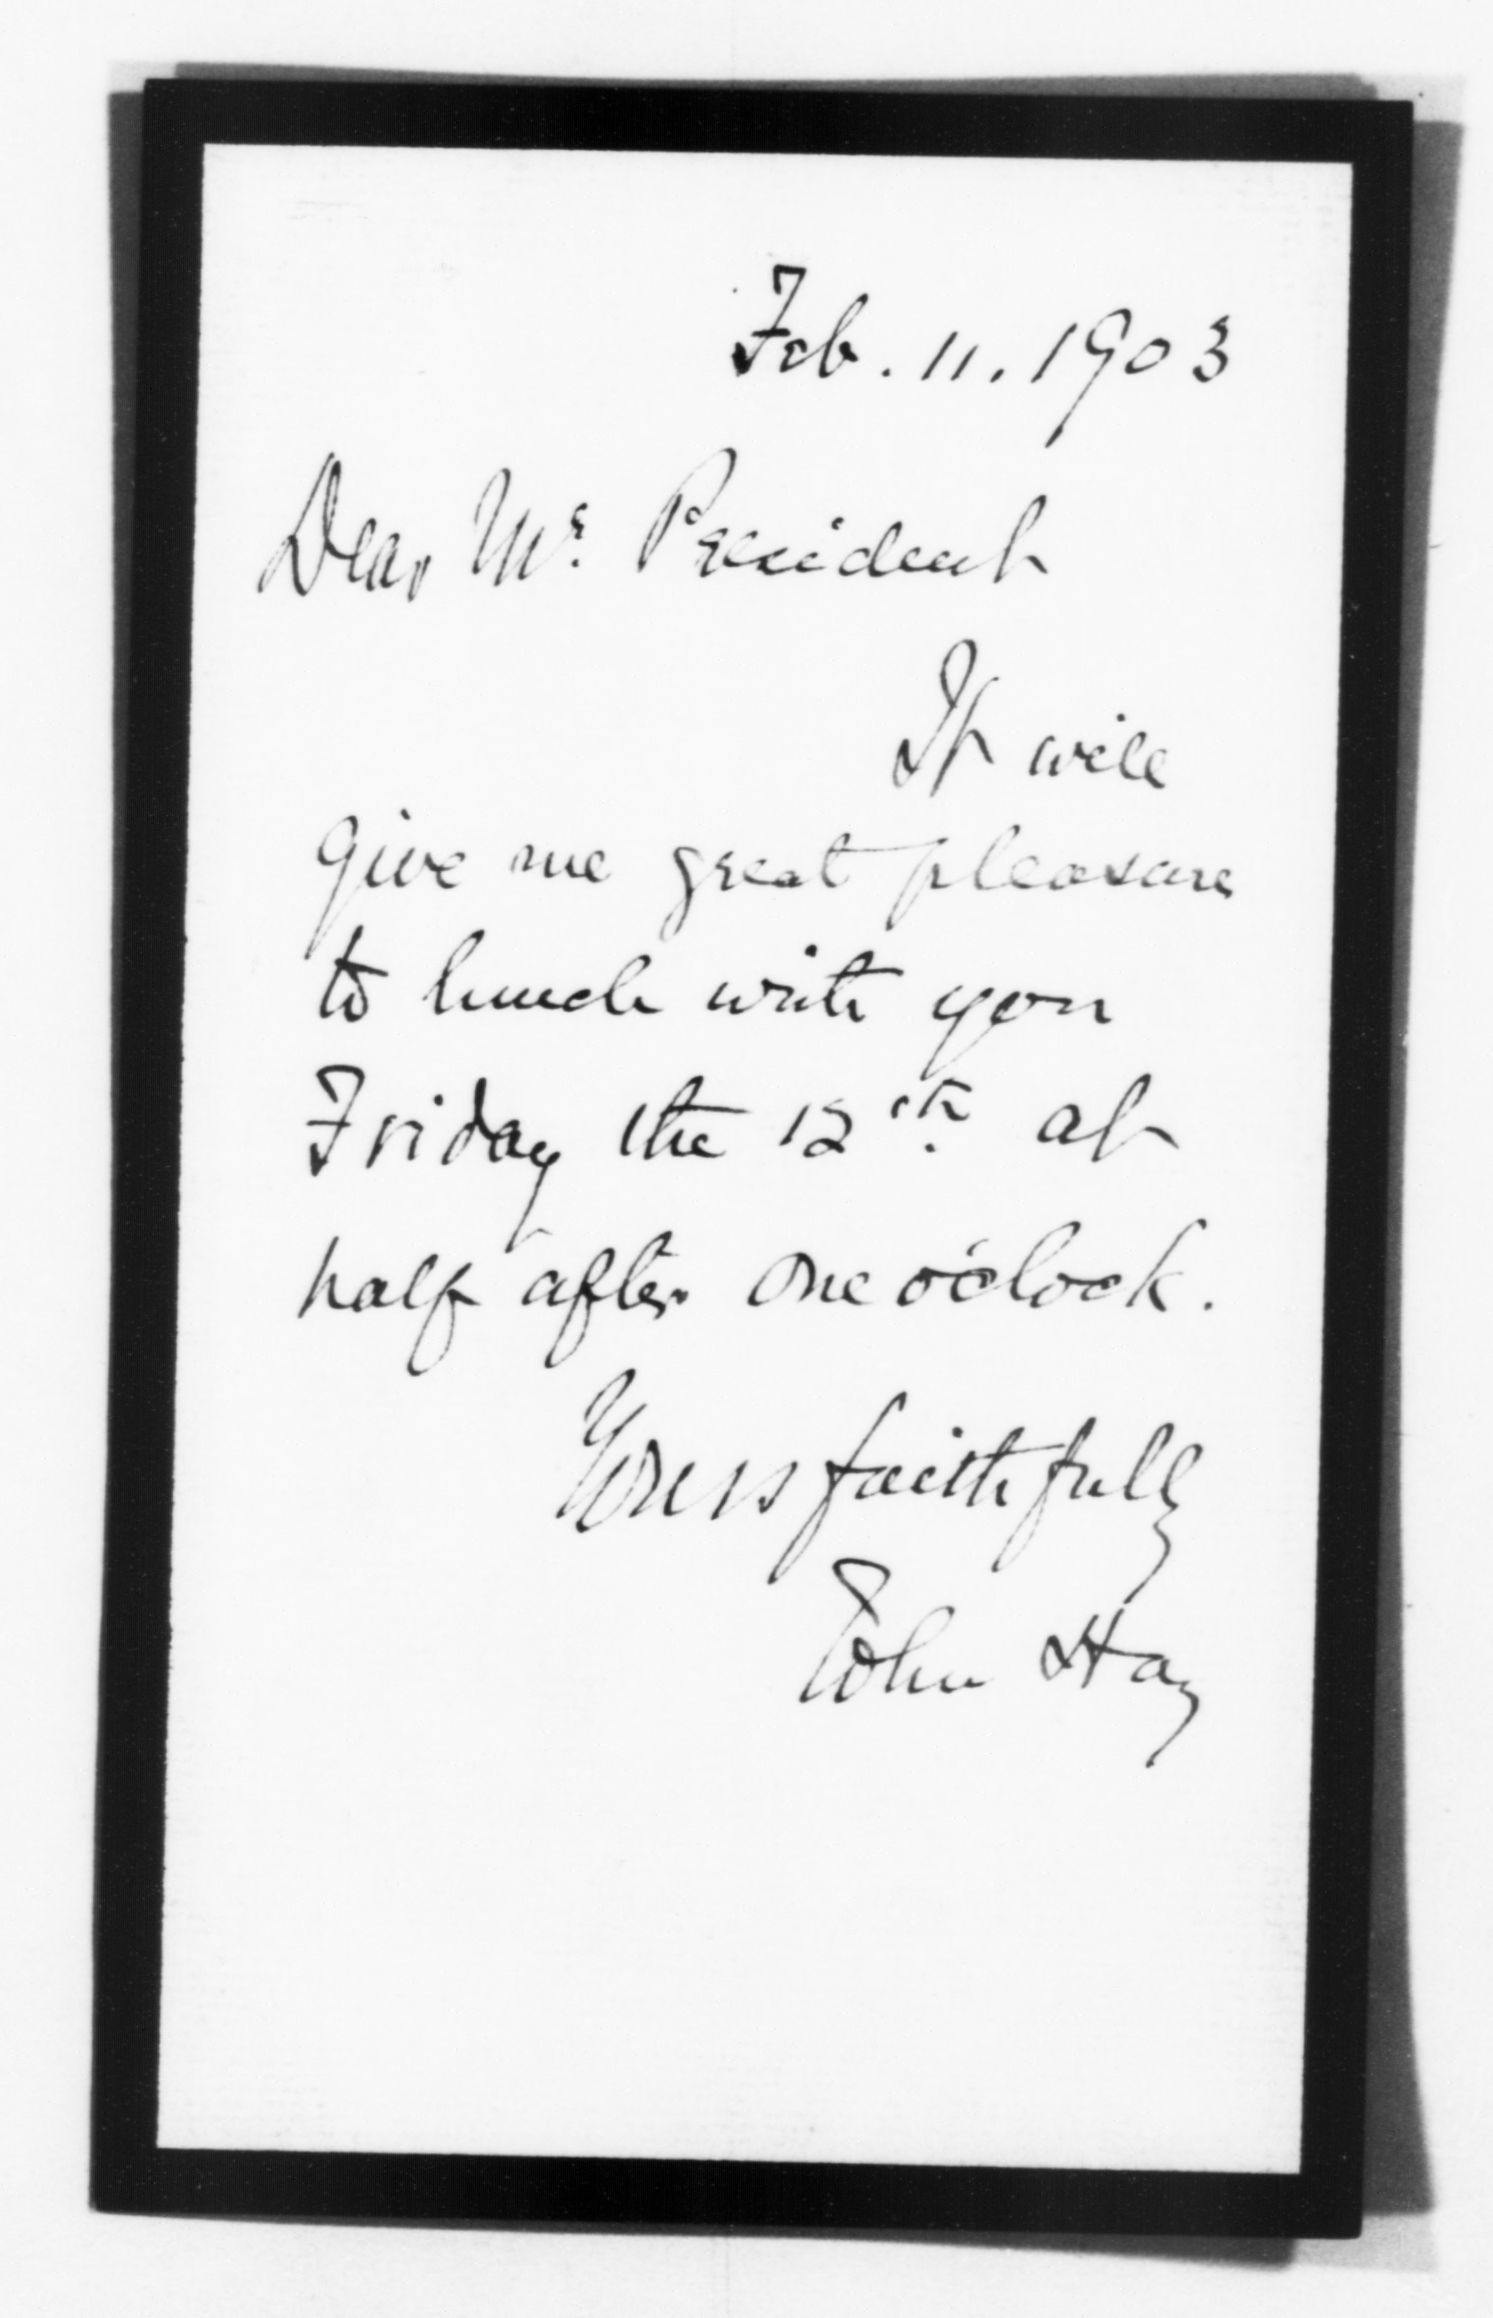 Feb. 11. 1903
Dear Mr. President
It will
give me great pleasure
to lunch with you
Friday the 12th. at
half after one o'clock.
Yours faithfully
John Hay